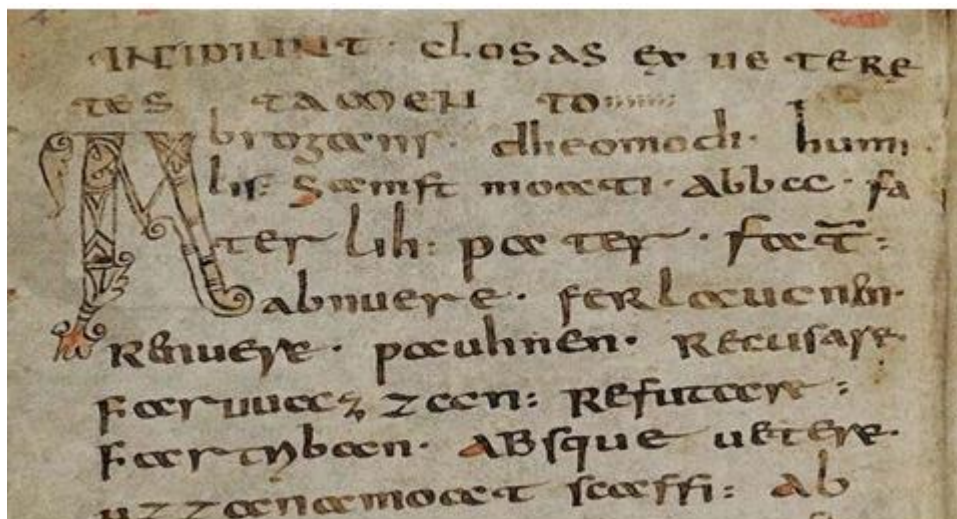 INCIPIUNT · CLOSAS EX UETERE
TES TAMEN TO
Abrogans · dheomodi · humi
lis: samft moati · abba · fa
ter lih: pater · fat̄:
abnuere · ferlaucnen ·
Renuere · pauhnen · Recusare ·
faruuazzan: Refutare:
fartriban · ABsque uetere ·
uzzanamoat scaffi: ab